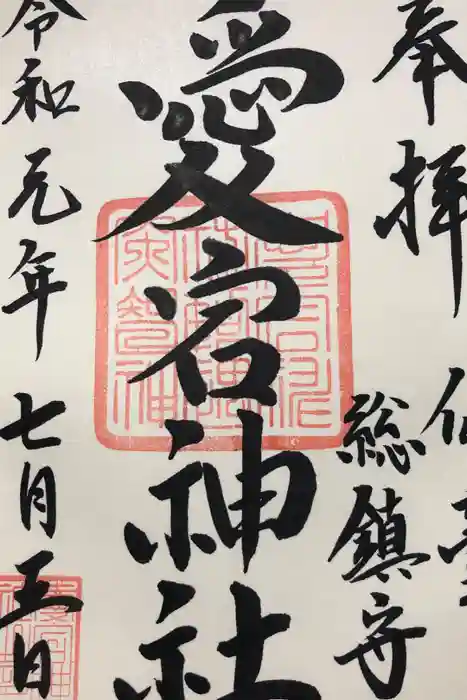 奉拝
仙臺
総鎮守
愛宕神社
令和元年七月五日